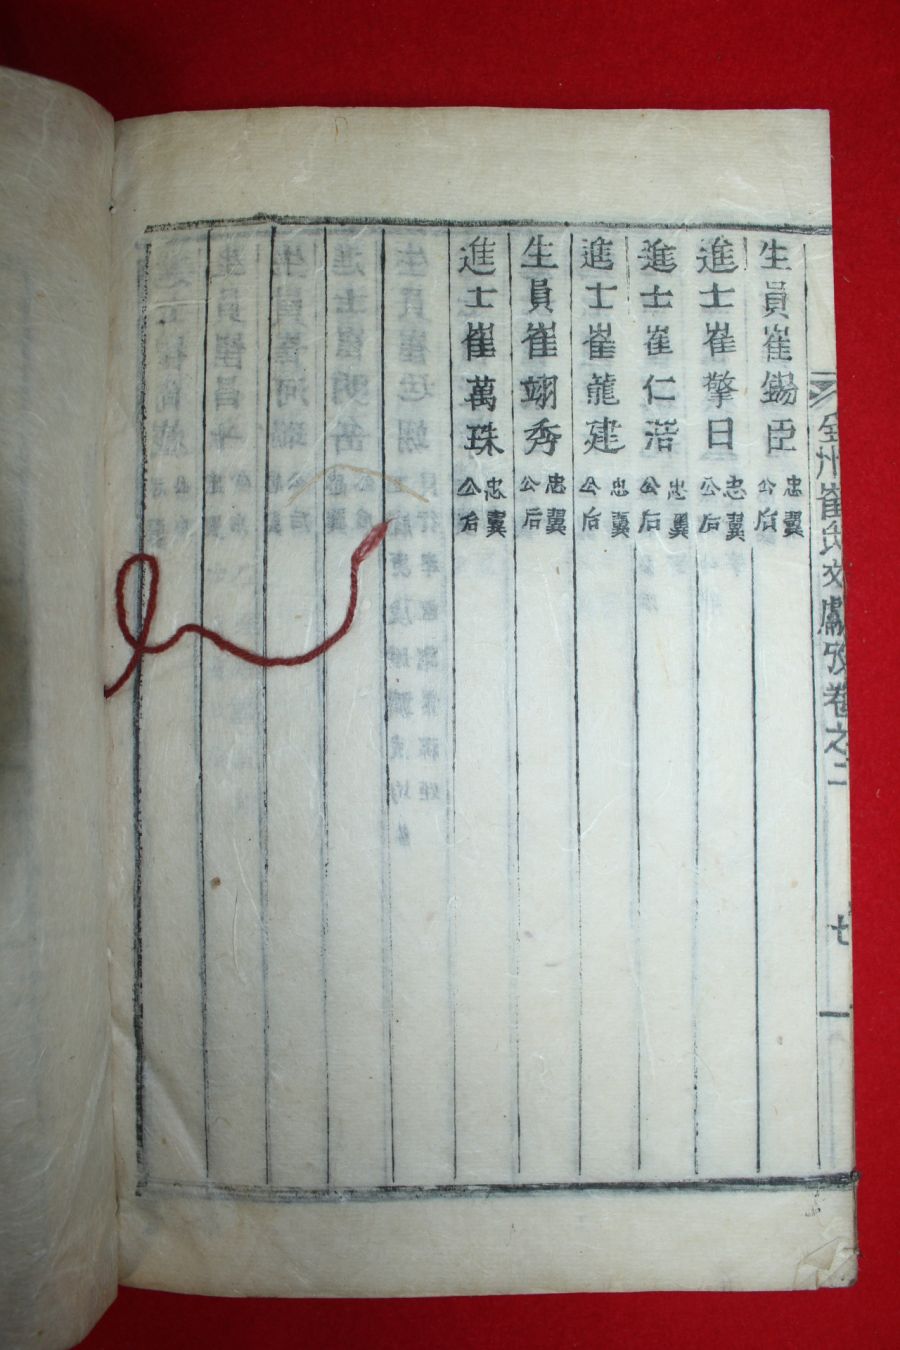 生員崔錫臣 忠翼公后
進士崔擎日 忠翼公后
進士崔仁浩 忠翼公后
進士崔龍建 忠翼公后
生員崔翊秀 忠翼公后
進士崔萬珠 忠翼公后
全州崔氏文獻攷卷之二
七